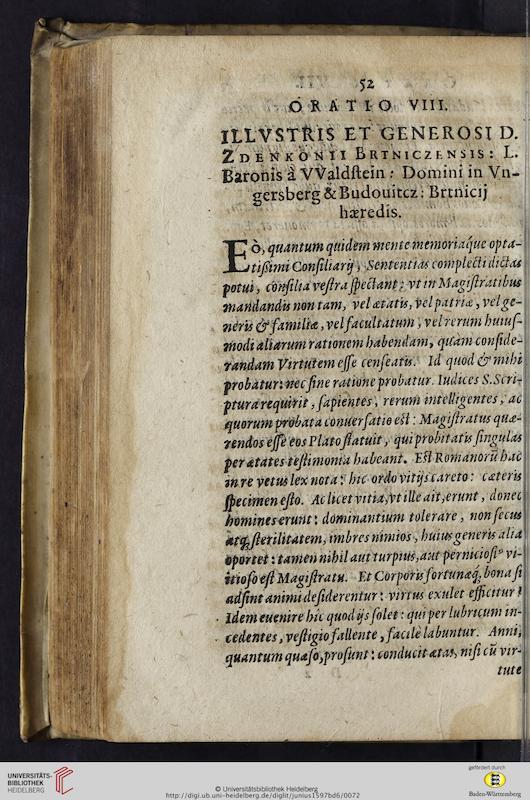 52
ORATIO VIII.
ILLVSTRIS ET GENEROSI D.
ZDENKONII BRTNICZENSIS: L.
Baronis à VValdſtein: Domini in Vn-
gersberg & Budouitcz: Brtnicij
hæredis.
EÒ, quantum quidem mente memoriaq́ue opta-
tißimi Conſiliarij, Sententias complecti dictas
potui, conſilia veſtra ſpectant: vt in Magiſtratibus
mandandis non tam, vel ætatis, vel patriæ, vel ge-
neris & familiæ, vel facultatum, vel rerum huiuſ-
modi aliarum rationem habendam, quàm conſide-
randam Virtutem eſſe cenſeatis. Id quod & mihi
probatur: nec ſine ratione probatur. Iudices S. Scri-
ptura requirit, ſapientes, rerum intelligentes, ac
quorum probata conuerſatio eſt: Magiſtratus quæ-
rendos eſſe eos Plato ſtatuit, qui probitatis ſingulas
per ætates teſtimonia habeant. Eſt Romanorū hac
in re vetus lex nota: hic ordo vitijs careto: cæteris
ſpecimen eſto. Ac licet vitia, vt ille ait, erunt, donec
homines erunt: dominantium tolerare, non ſecus
atq; ſterilitatem, imbres nimios, huius generis alia
oportet: tamen nihil aut turpius, aut pernicioſiꝰ vi-
itioſo eſt Magiſtratu. Et Corporis fortunæq́; bona ſi
adſint animi deſiderentur: virtus exulet efficitur?
Idem euenire hic quod ijs ſolet: qui per lubricum in-
cedentes, veſtigio fallente, facile labuntur. Anni,
quantum quæſo, proſunt: conducit ætas, niſi cū vir-
tute
UNIVERSITÄTS-
BIBLIOTHEK
HEIDELBERG
© Universitätsbibliothek Heidelberg
http://digi.ub.uni-heidelberg.de/diglit/junius1597bd6/0072
gefördert durch
Baden-Württemberg